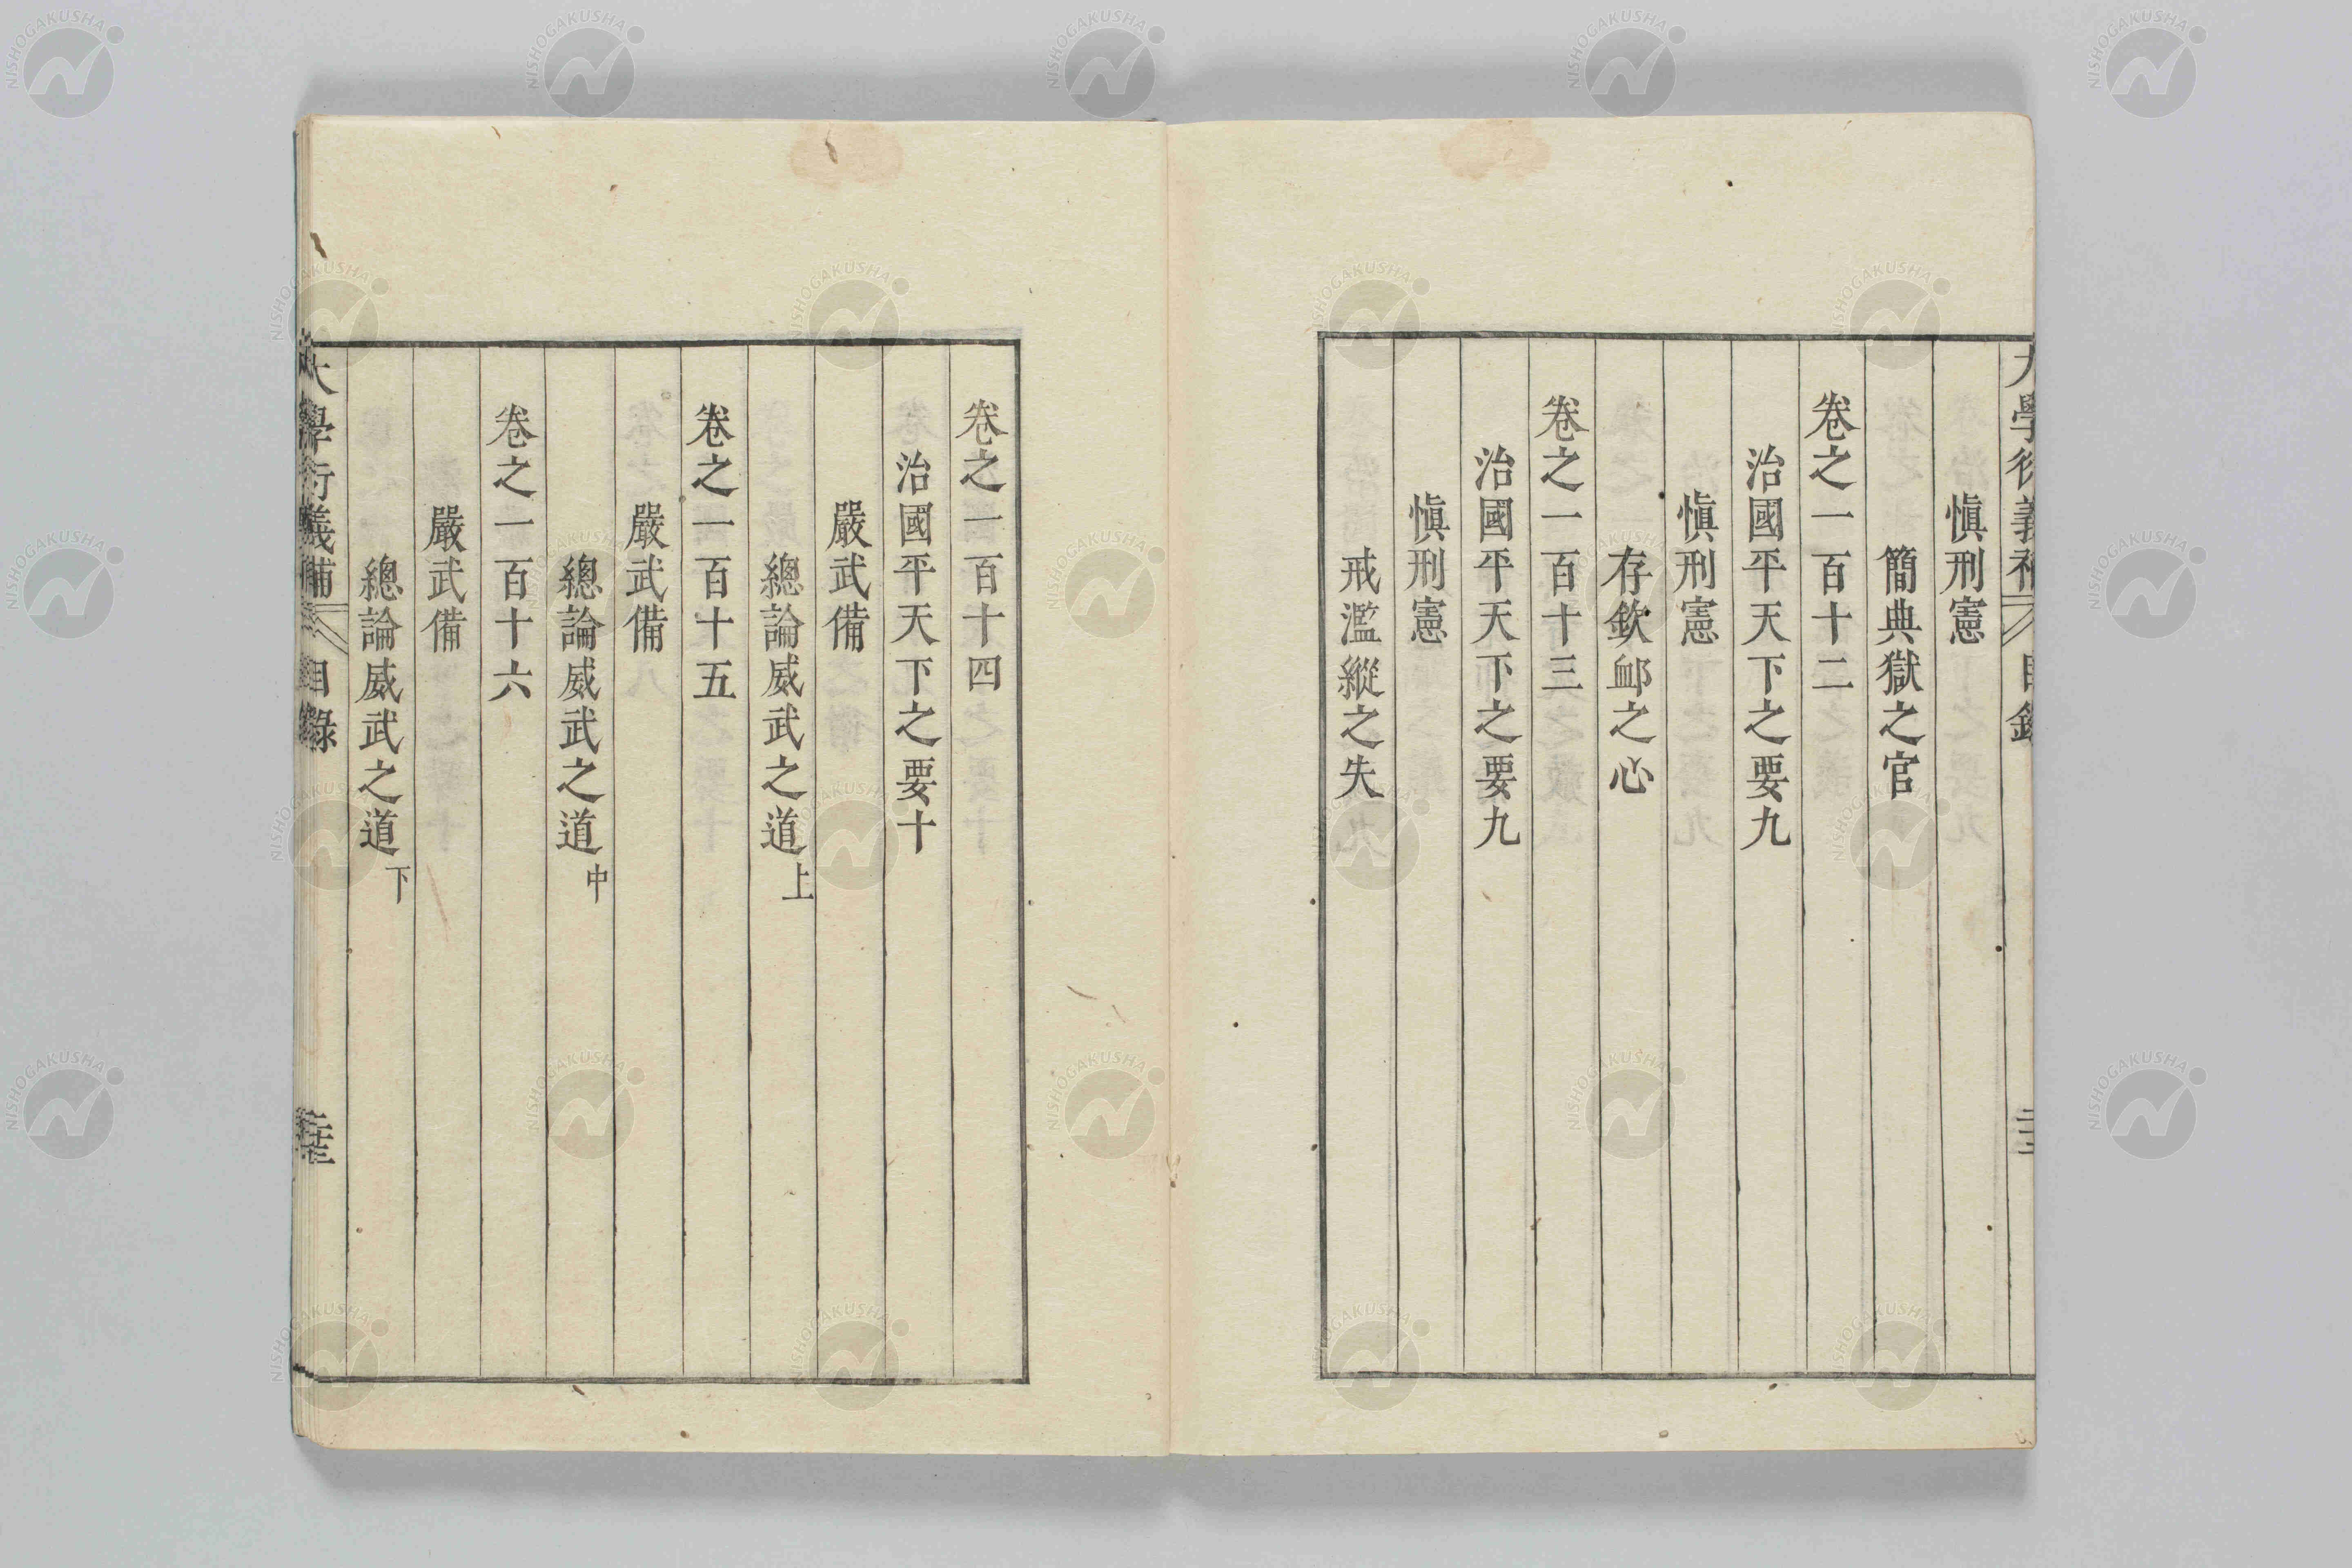 愼刑憲
簡典獄之官
卷之一百十二
治國平天下之要九
愼刑憲
存欽䘏之心
卷之一百十三
治國平天下之要九
愼刑憲
戒濫縱之失
卷之一百十四
治國平天下之要十
嚴武備
總論威武之道上
卷之一百十五
嚴武備
總論威武之道中
卷之一百十六
嚴武備
總論威武之道下
大學衍義補 目錄
NISHOGAKUSHA